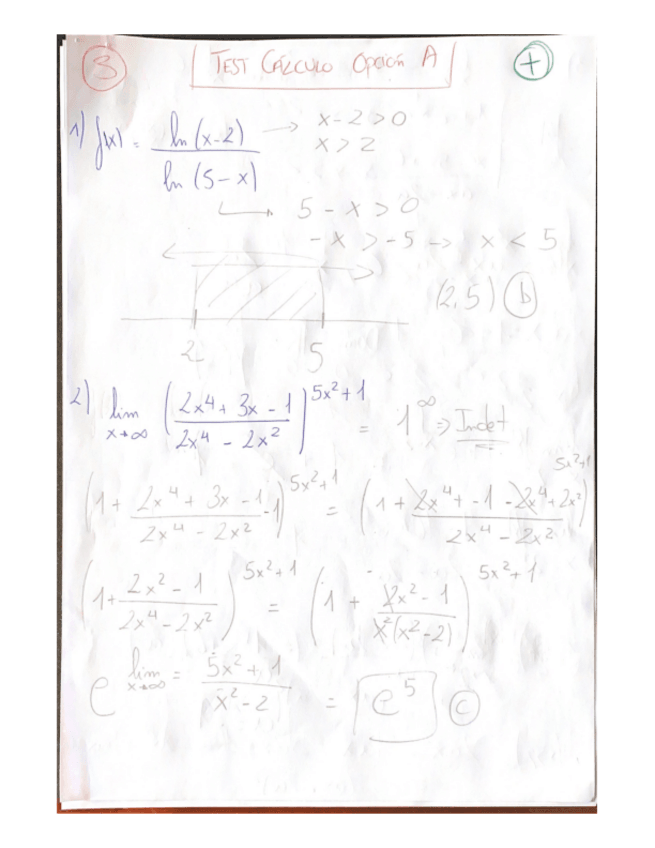 3 TEST CÁLCULO Opción A +
1) f(x) = ln(x-2) / ln(5-x) → x-2>0
x>2
5-x>0
-x>-5 → x<5
(2,5) b
2 5
2) lim x→∞ ((2x⁴+3x-1)/(2x⁴-2x²))^(5x²+1) = 1^∞ ⇒ Indet
(1+ (2x⁴+3x-1)/(2x⁴-2x²) -1)^(5x²+1) = (1+ (2x⁴+-1-2x⁴+2x²)/(2x⁴-2x²))^(5x²+1)
(1+ (2x²-1)/(2x⁴-2x²))^(5x²+1) = (1 + (2x²-1)/(x²(x²-2)))^(5x²+1)
e^(lim x→∞ = (5x²+1)/(x²-2)) = e⁵ c